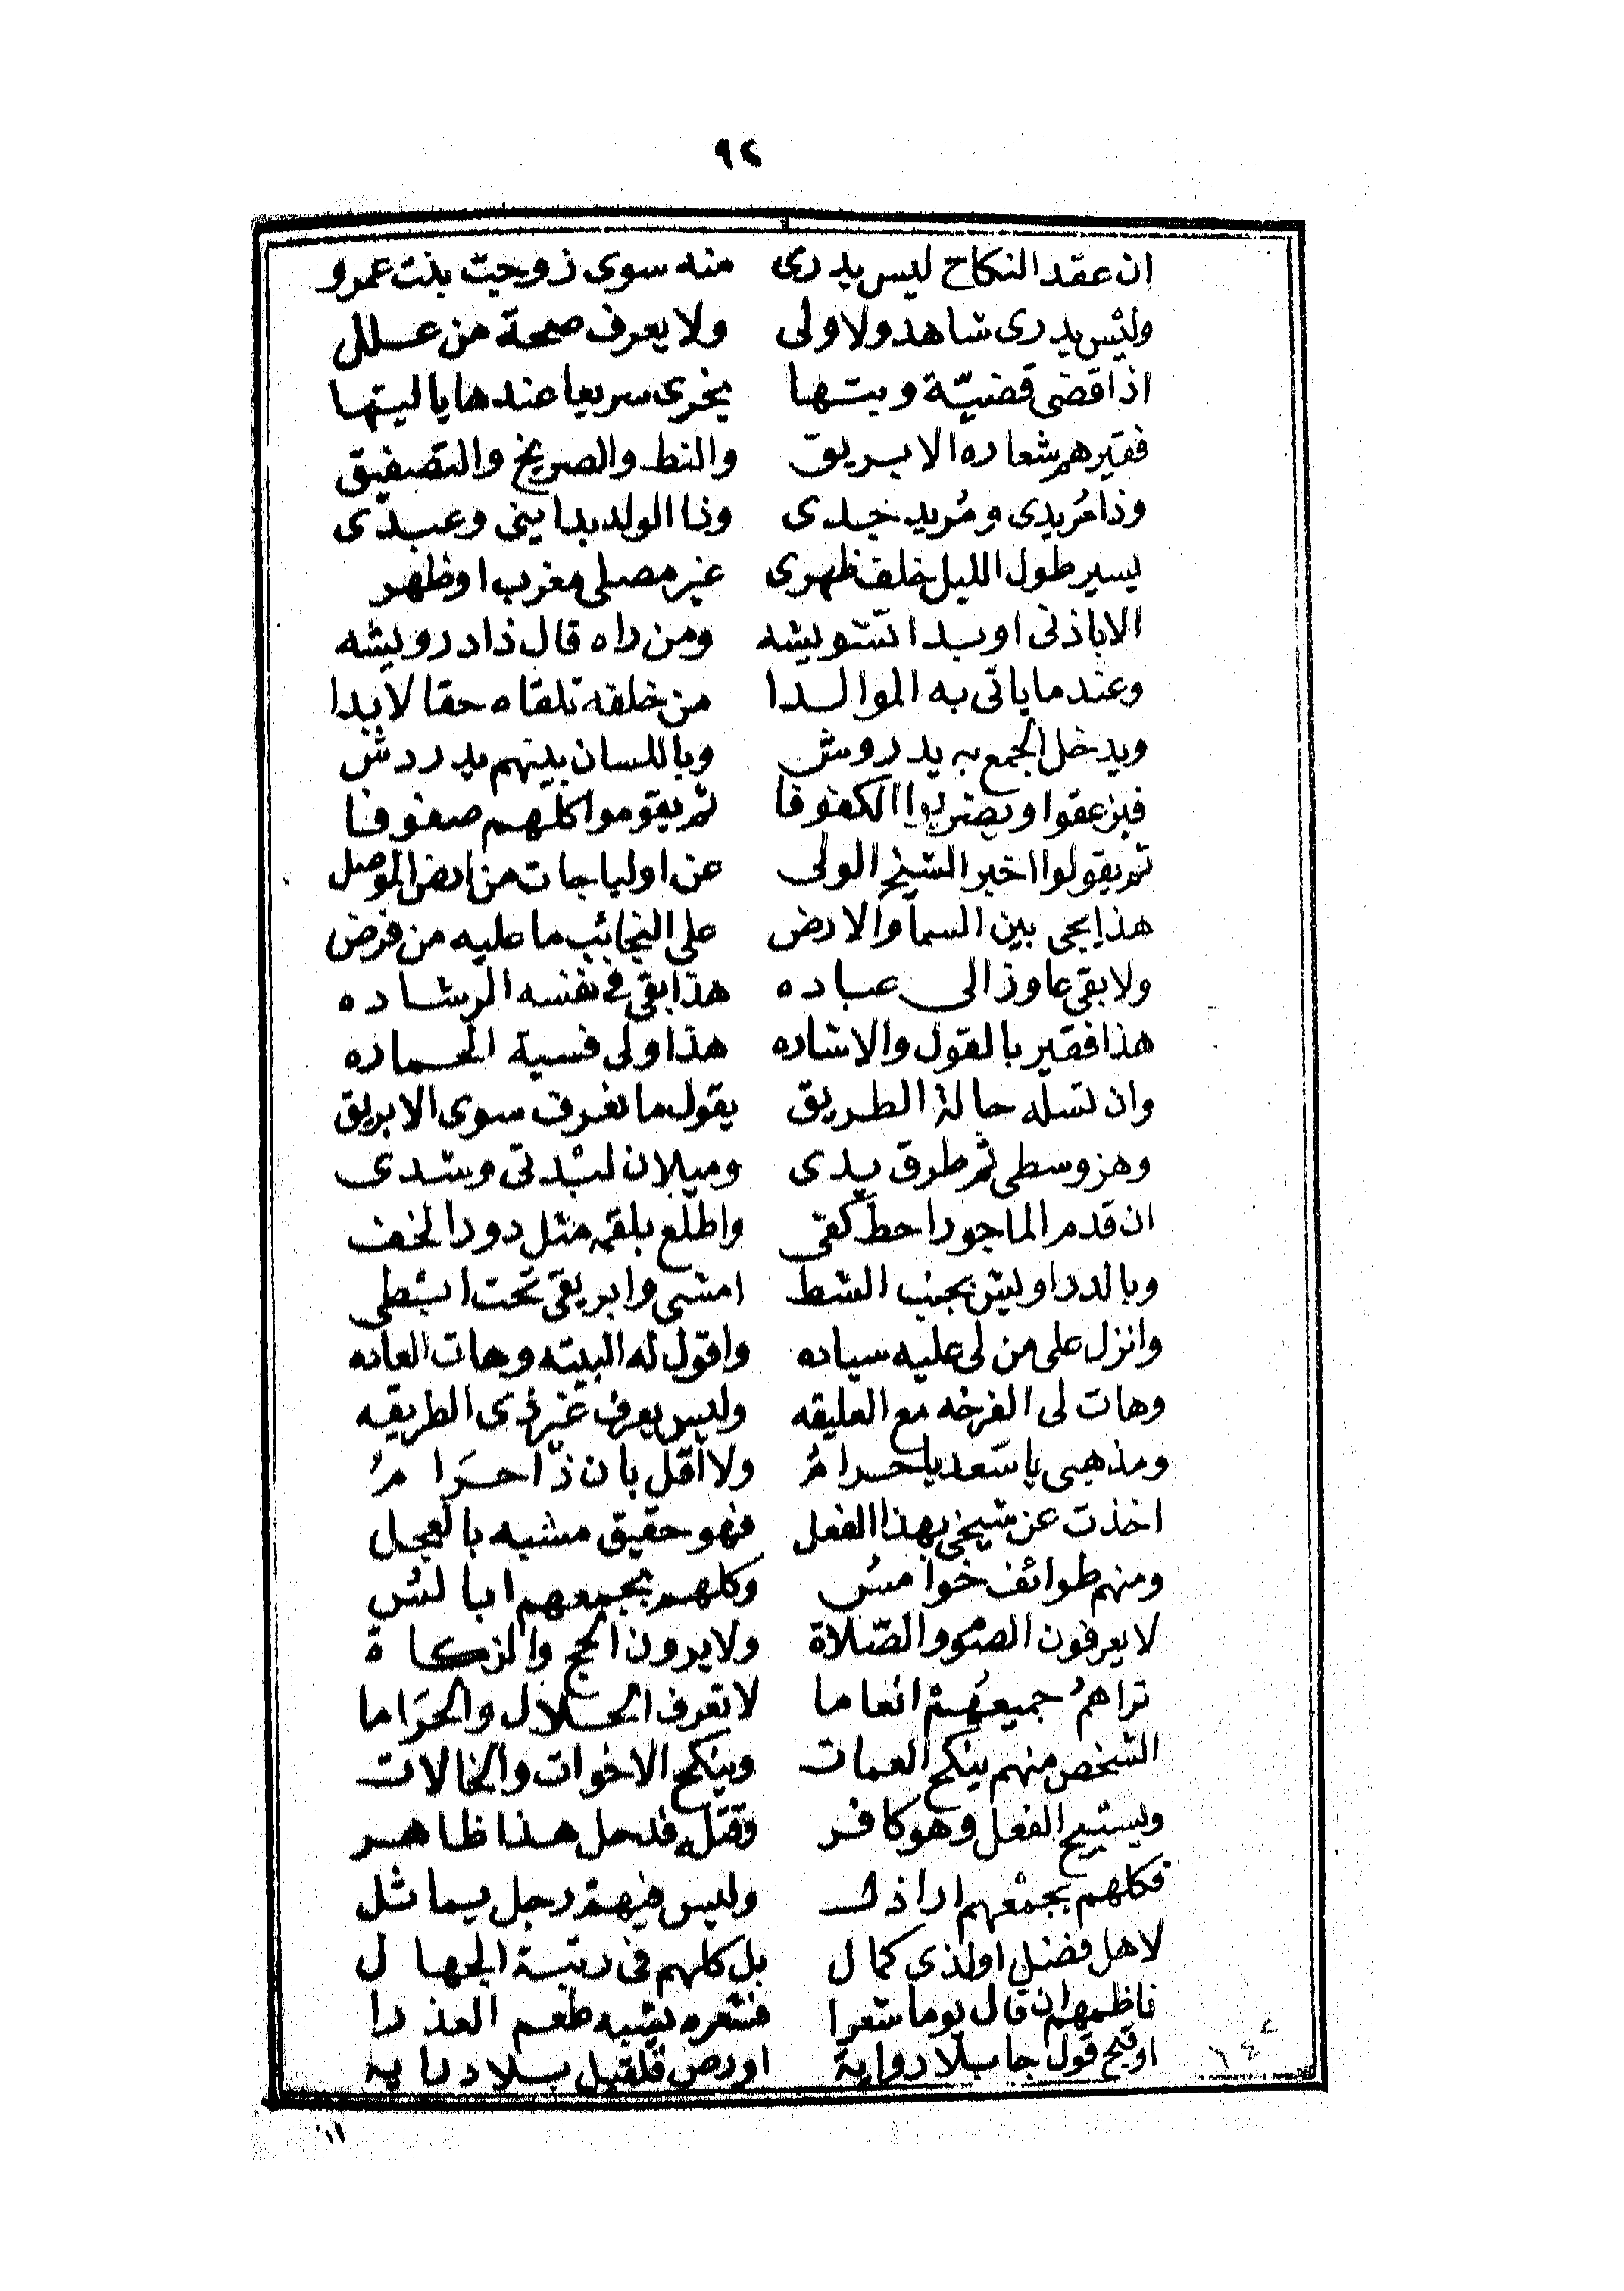 ٩٤
ان عقد النكاح ليس يدرى منه سوى زوجت بنت عمرو
وليس يدرى شاهد ولا ولى ولا يعرف صحة من علل
اذا قضى قضيّة وبتها يخرى سريعا عندها ياليتها
فقيرهم شعاره الابريق والنط والصريخ والتصفيق
وذا مُريدى ومُريد جدى وذا الولد بدايتى وعبدى
يسير طول الليل خلف ظهرى غير مصلى مغرب او ظهر
الا باذنى او بدا تشويشه ومن راه قال ذا درويشه
وعند ما ياتى به الموالدا من خلفه تلقاه حقا لابدا
ويدخل الجمع به يدروش وباللسان بينهم يدردش
فيزعقوا ويضربوا الكفوفا ثم يقوموا كلهم صفوفا
ثم يقولوا اخبر الشيخ الولى عن اوليا جات من ارض الموصل
هذا يجى بين السما والارض على النجائب ما عليه من فرض
ولا بقى عاوز الى عباده هذا بقى فى نفسه الرشاده
هذا فقير بالقول والاشاره هذا ولى فسية الحماره
وان تسله حالة الطريق يقول ما نعرف سوى الابريق
وهز وسطى ثم طرق يدى وميلان لبدتى وشدى
ان قدم الماجور احط كفى واطلع بلقمه مثل دور الخف
وبالدراويش بجنب الشط امشى وابريقى تحت ابطى
وانزل على من لى عليه سياده واقول له البيته وهات العاده
وهات لى الفرخه مع العليقه وليس يعرف غير ذى الطريقه
ومذهبى يا سَعد يا حرامُ ولا اقل بان ذا حَرامُ
اخذت عن شيخى بهذا الفعل فهو حقيق مشبه بالعجل
ومنهم طوائف خوامسُ وكلهم بجمعهم ابالسُ
لا يعرفون الصوم والصّلاة ولا يرون الحج والزكاة
تراهمُ جميعهُم انعاما لا تعرف الحلال والحَراما
الشخص منهم ينكح العمات وينكح الاخوات والخالات
ويستبيح الفعل وهو كافر وقتله قد حل هذا ظاهر
فكلهم بجمعهم اراذل وليس فيهم رجل يماثل
لاهل فضل او لذى كمال بل كلهم فى رتبة الجهال
ناظمهم ان قال يوما شعرا فشعره يشبه طعم العذرا
او قبح قول جا بلا رواية او رص قلقيل بلا درايه